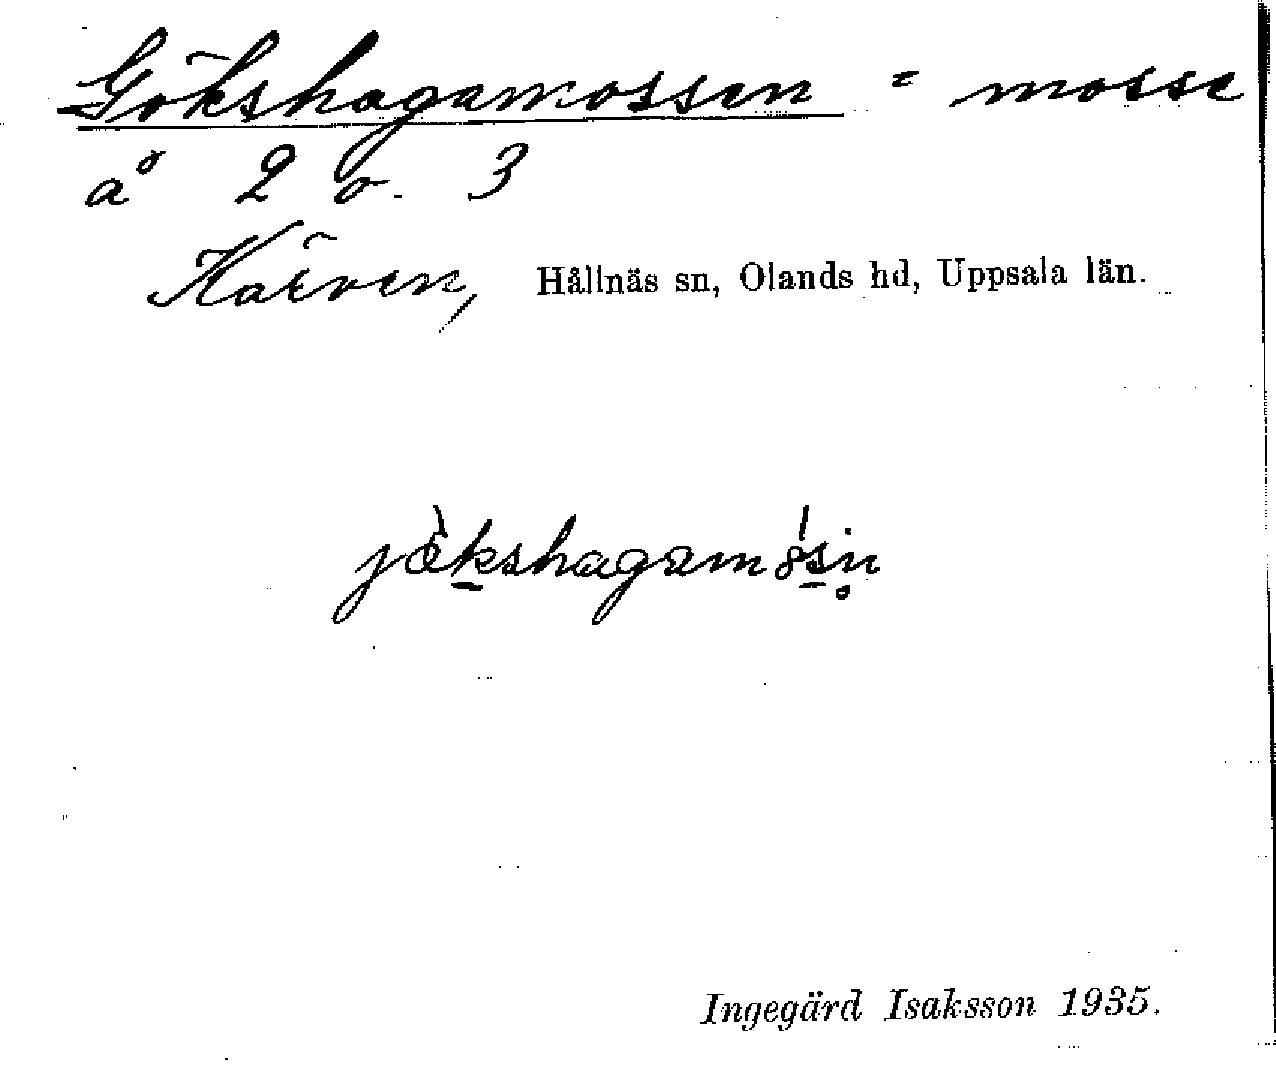 Gökshagamossen = mosse
å 2 o. 3
Kärven, Hållnäs sn, Olands hd, Uppsala län.
jö̀kshagamósi̥n
Ingegärd Isaksson 1935.